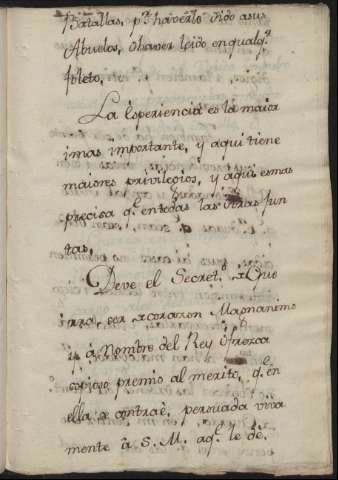 Batallas, pr. haverlo oido a sus
Abuelos, o haver leido en qualqr.
foleto,
La Esperiencia es la maior
i mas importante, y aqui tiene
maiores privilegios, y aqui es mas
precisa q. en todas las otras Jun
tas,
Deve el Secreto. de Gue
rra, ser de corazon Magnanimo
á Nombre del Rey ofrezca
copioso premio al merito, q. en
ella se contraè, persuada viva
mente â S. M. aql. le dè.